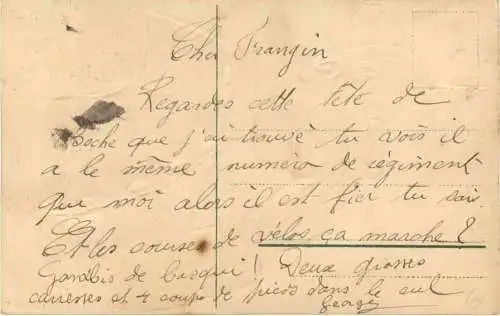 Cher Frangin
Regardes cette tête de
boche que j'ai trouvé tu vois il
a le même numéro de régiment
que moi alors il est fier tu sai
Et les courses de vélos ça marche ?
de ! Deux grosses
caresses et 4 coups de pieds dans le cul
Georges